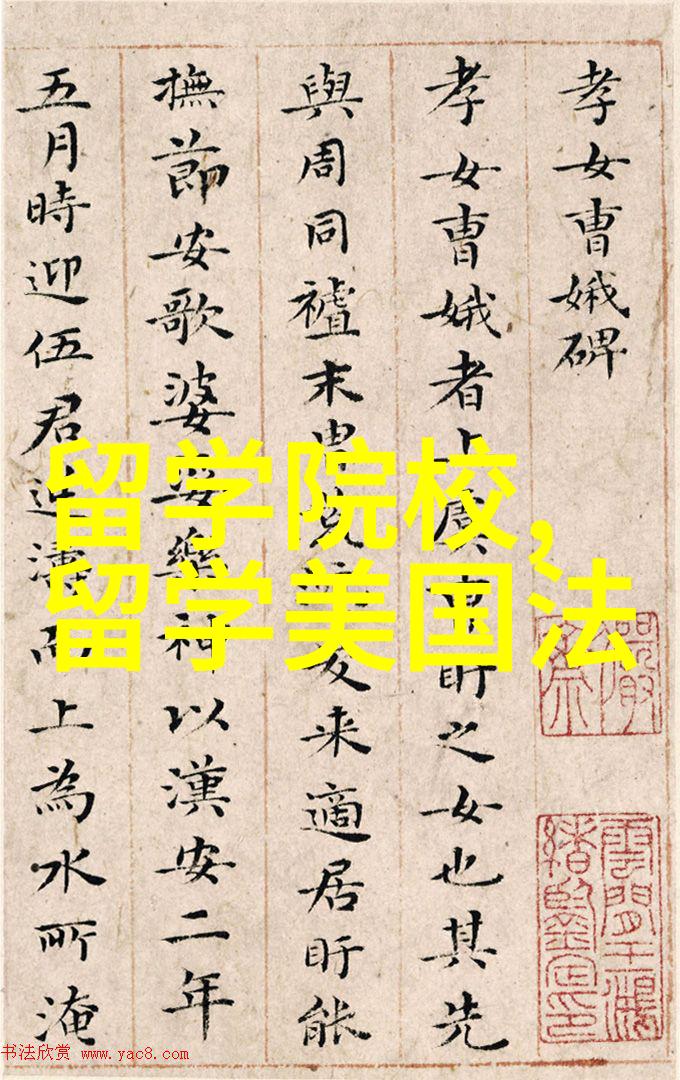 孝女曹娥碑
孝女曹娥者上虞曹盱之女也其先
與周同禮末胄爰来適居盱能
撫節安歌婆娑樂神以漢安二年
五月時迎伍君逆濤而上為水所淹
留学院校,
留学美国法
雲間王鴻緒鑒定印
书法欣赏 www.yac8.com